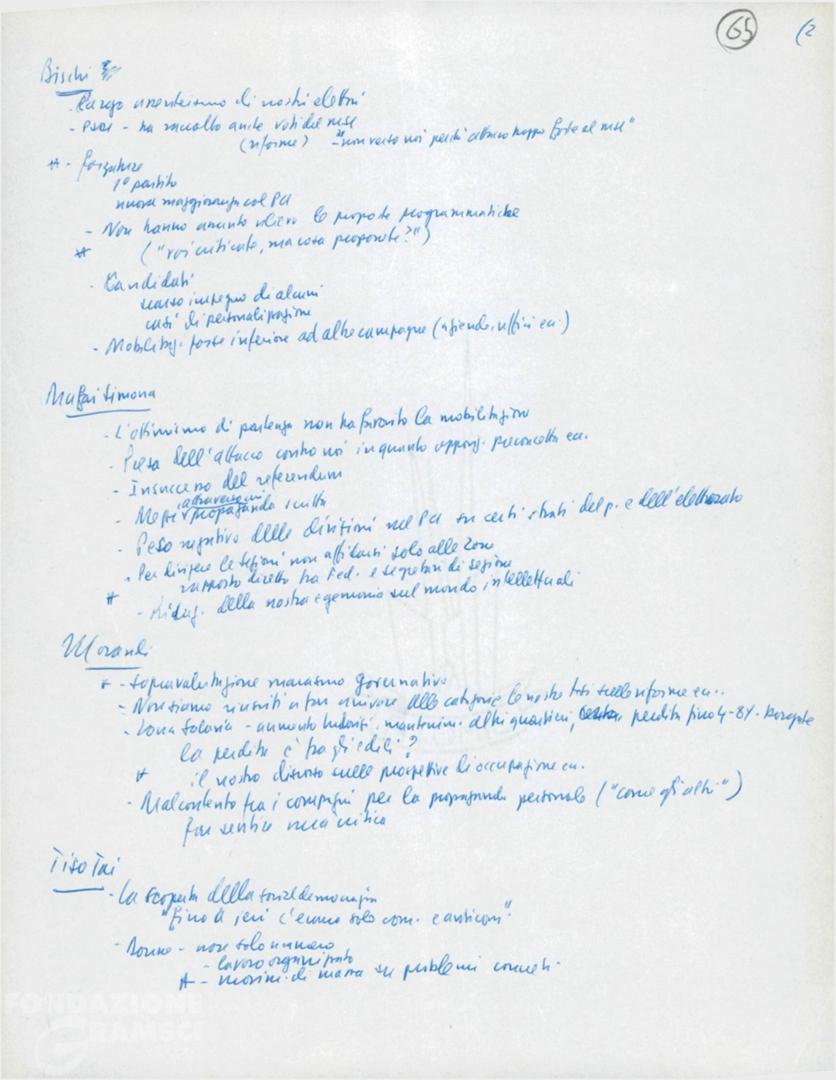 65 (2
Bischi
- Largo assenteismo di nostri elettori
- PSDI - ha raccolto anche voti del MSI
(riforme) "non verso noi perché attacco troppo forte al MSI"
* - forzature
1° partito
nuova maggioranza col PCI
- Non hanno avuto rilievo le proposte programmatiche
* ("voi criticate, ma cosa proponete?")
- Candidati
scarso impegno di alcuni
casi di personalizzazione
- Mobilitaz. forse inferiore ad altre campagne (aziende, uffici ecc.)
Mafai Simona
- L'ottimismo di partenza non ha favorito la mobilitazione
- Presa dell'attacco contro noi in quanto oppos. preconcetta ecc.
- Insuccesso del referendum
- propaganda scritta
- Peso negativo delle divisioni nel PCI su certi strati del p. e dell'elettorato
- Per dirigere le sezioni non affidarsi solo alle Zone
rapporto diretto tra Fed. e segretari di sezione
* - Riduz. della nostra egemonia sul mondo intellettuali
Morandi
* - Sopravalutazione marasmo governativo
- Non siamo riusciti a far arrivare alle categorie le nostre tesi sulle riforme ecc..
- Zona Salaria - aumento mantenim. altri quartieri, perdita fino 4-8% borgate
la perdita è tra gli edili?
* il nostro discorso sulle prospettive di occupazione ecc.
- Malcontento tra i compagni per la propaganda personale ("come gli altri")
far sentire una critica
Tiso Tai
- La scoperta della socialdemocrazia
"fino a ieri c'erano solo com. e anticom".
- Donne - non solo numero
- lavoro organizzato
* - movim. di massa su problemi concreti.
FONDAZIONE
GRAMSCI